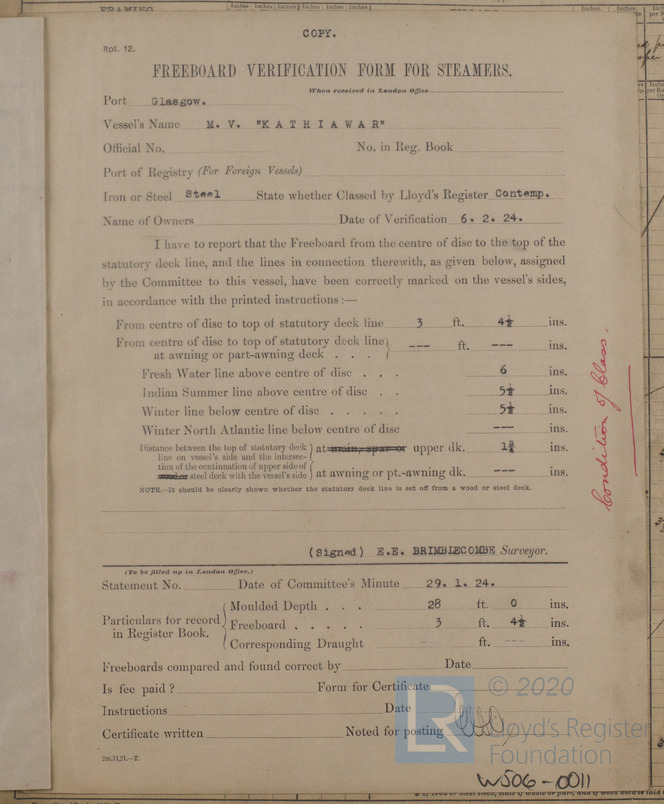 FRAMING
Inches Inches Inches Inches Inches Inches
Inches.
COPY.
Rpt. 12.
FREEBOARD VERIFICATION FORM FOR STEAMERS.
When received in London Office
Port Glasgow.
Vessel's Name M. V. "KATHIAWAR"
Official No. No. in Reg. Book
Port of Registry (For Foreign Vessels)
Iron or Steel Steel State whether Classed by Lloyd's Register Contemp.
Name of Owners Date of Verification 6. 2. 24.
I have to report that the Freeboard from the centre of disc to the top of the
statutory deck line, and the lines in connection therewith, as given below, assigned
by the Committee to this vessel, have been correctly marked on the vessel's sides,
in accordance with the printed instructions :—
From centre of disc to top of statutory deck line 3 ft. 4½ ins.
From centre of disc to top of statutory deck line
at awning or part-awning deck . . . --- ft. --- ins.
Fresh Water line above centre of disc . . . 6 ins.
Indian Summer line above centre of disc . . 5½ ins.
Winter line below centre of disc . . . . . 5½ ins.
Winter North Atlantic line below centre of disc --- ins.
Distance between the top of statutory deck
line on vessel's side and the intersec-
tion of the continuation of upper side of
steel deck with the vessel's side
at main, spar or upper dk. ins.
at awning or pt.-awning dk. --- ins.
NOTE.—It should be clearly shown whether the statutory deck line is set off from a wood or steel deck.
Condition of Class.
(Signed) E.E. BRIMBLECOMBE Surveyor.
(To be filled up in London Office.)
Statement No. Date of Committee's Minute 29. 1. 24.
Particulars for record
in Register Book.
Moulded Depth . . . 28 ft. 0 ins.
Freeboard . . . . . 3 ft. 4½ ins.
Corresponding Draught ft. --- ins.
Freeboards compared and found correct by Date
Is fee paid ? Form for Certificate
Instructions Date
Certificate written Noted for posting
2m,11,21.—T.
LR © 2020
Lloyd's Register
Foundation
W506-0011